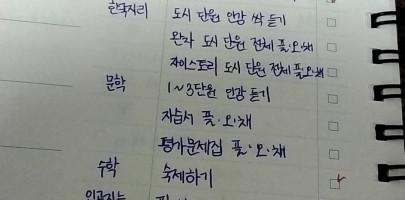 한국지리 도시 단원 인강 싹 듣기
완자 도시 단원 전체 풀·오·채
자이스토리 도시 단원 전체 풀·오·채
문학 1~3단원 인강 듣기
자습서 풀·오·채
평가문제집 풀·오·채
수학 숙제하기